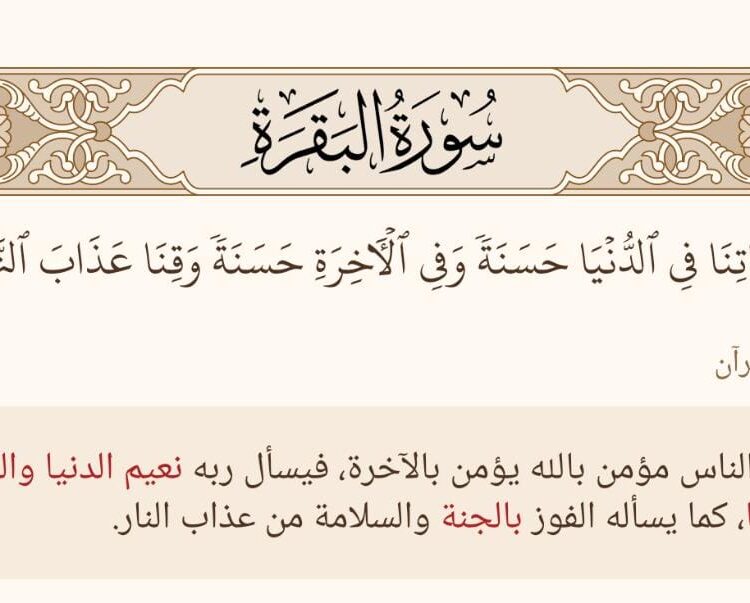 سُورَةُ البَقَرَةِ
فِي ٱلدُّنۡيَا حَسَنَةٗ وَفِي ٱلۡأٓخِرَةِ حَسَنَةٗ وَقِنَا عَذَابَ
الناس مؤمن بالله يؤمن بالآخرة، فيسأل ربه نعيم الدنيا
كما يسأله الفوز بالجنة والسلامة من عذاب النار.